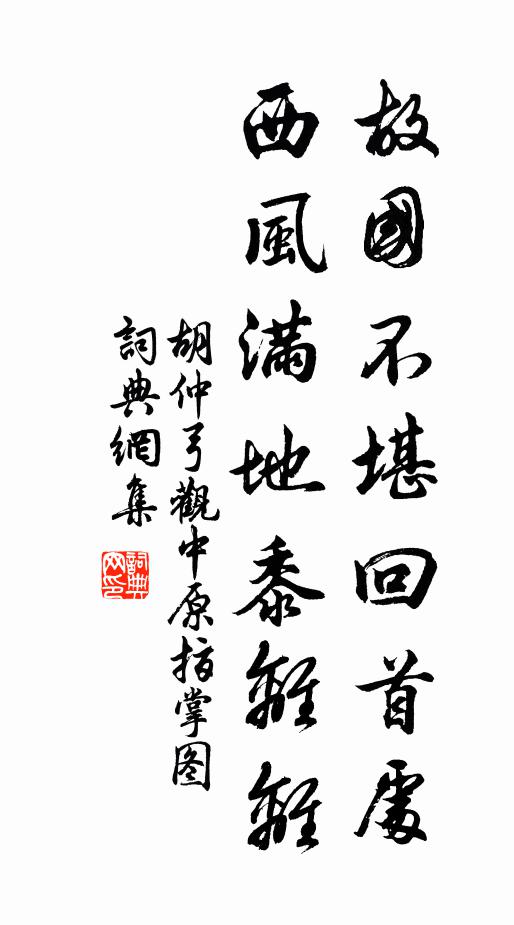 故國不堪回首處
西風滿地黍離離
胡仲弓觀中原指掌图
詞典網集
詞典
网印